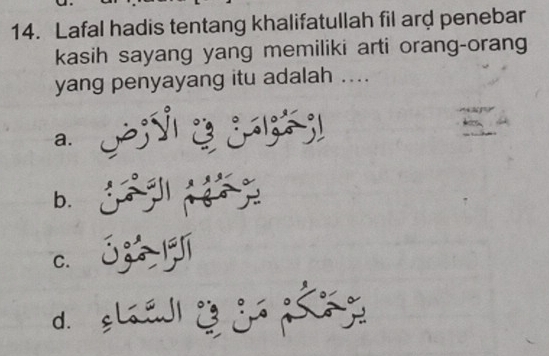 14. Lafal hadis tentang khalifatullah fil arḍ penebar
kasih sayang yang memiliki arti orang-orang
yang penyayang itu adalah ....
a. اِرْحَمُوْامَنْ فِيْ الْاَرْضِ
b. يَرْحَمُهُمُ الرَّحْمٰنُ
c. اَلرَّاحِمُوْنَ
d. يَرْحَمْكُمْ مَنْ فِيْ السَّمَاءِ